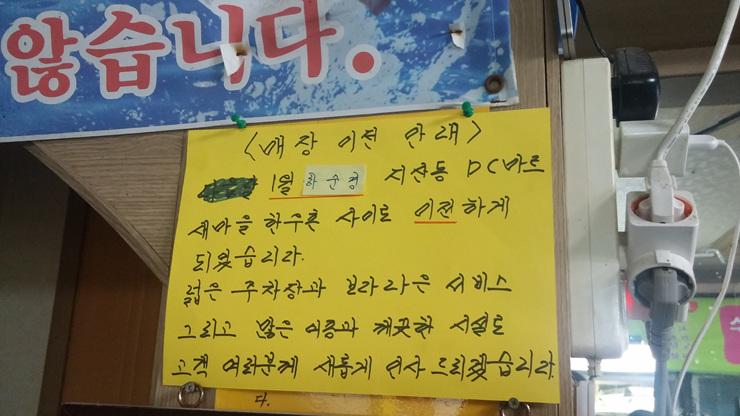 않습니다.
<매장 이전 안내>
1월 하순경 지산동 DC마트
새마을 한우촌 사이로 이전하게
되었습니다.
넓은 주차장과 보다 나은 서비스
그리고 많은 어종과 깨끗한 시설로
고객 여러분께 새롭게 인사 드리겠습니다.
다.